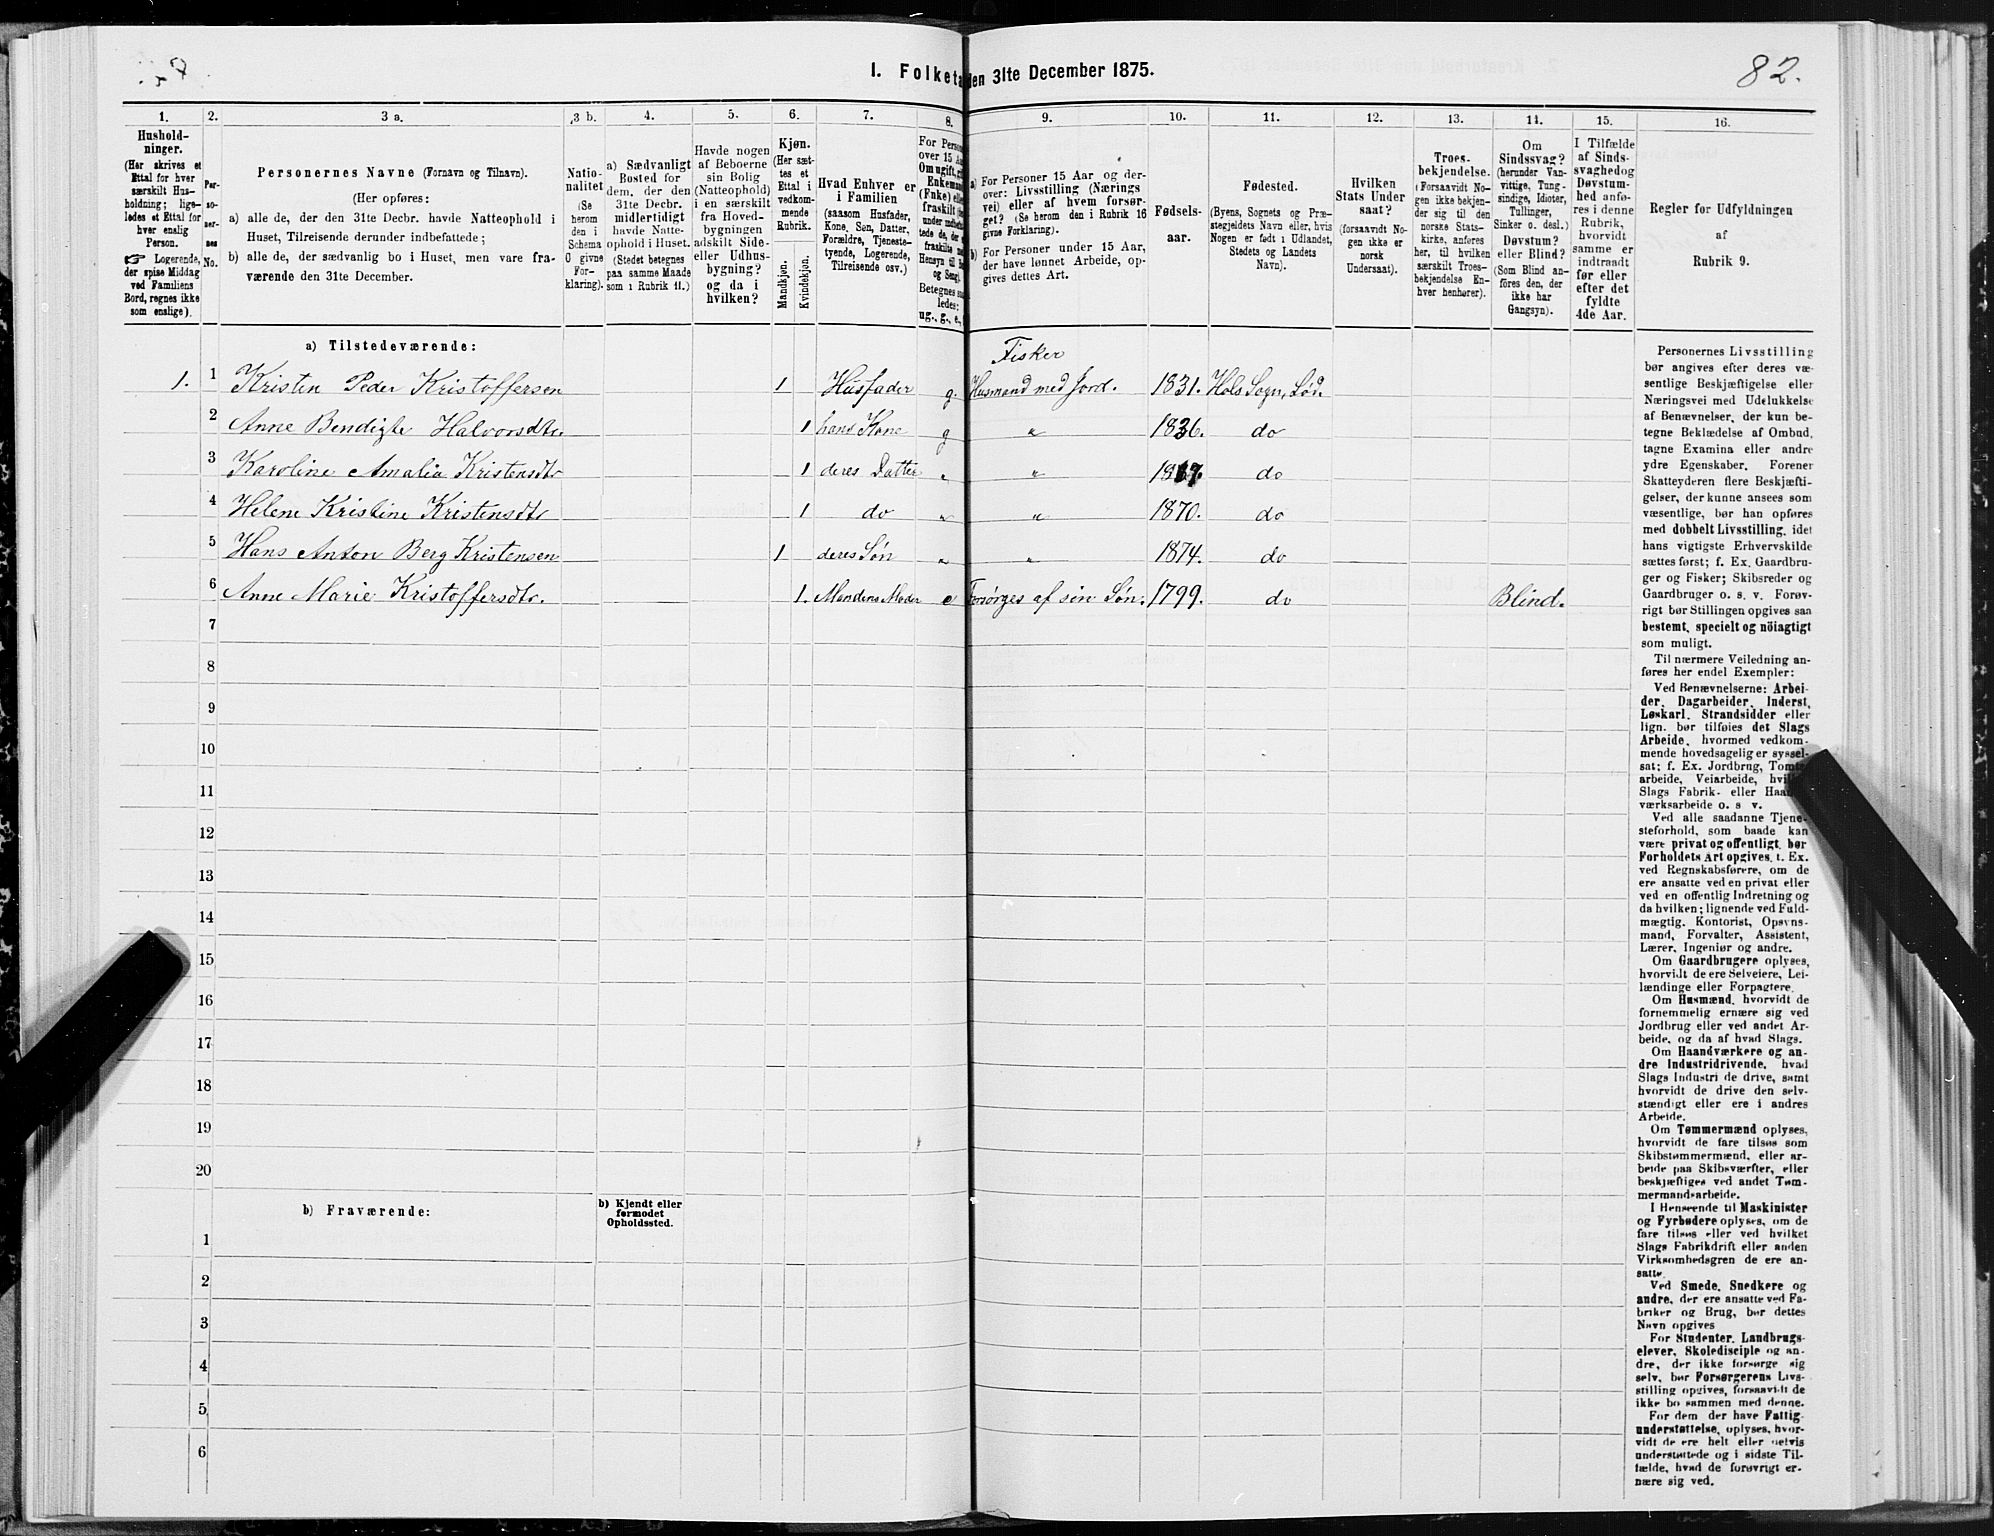 I. Folketæ
den 31te December 1875.
82.
1. 2. 3 a. 3 b. 4. 5. 6. 7. 8. 9. 10. 11. 12. 13. 14. 15. 16.
Hushold-
ninger.
(Her skrives et
Ettal for hver
særskilt Hus-
holdning; lige-
ledes et Ettal for
hver enslig
Person.
☞ Logerende,
der spise Middag
ved Familiens
Bord, regnes ikke
som enslige).
Per-
so-
ner-
nes
No.
Personernes Navne (Fornavn og Tilnavn).
(Her opføres:
a) alle de, der den 31te Decbr. havde Natteophold i
Huset, Tilreisende derunder indbefattede;
b) alle de, der sædvanlig bo i Huset, men vare fra-
værende den 31te December.
Natio-
nalitet
(Se
herom
den i
Schema
O givne
For-
klaring).
a) Sædvanligt
Bosted for
dem, der den
31te Decbr.
midlertidigt
havde Natte-
ophold i Huset.
(Stedet betegnes
paa samme Maade
som i Rubrik 11.)
Havde nogen
af Beboerne
sin Bolig
(Natteophold)
i en særskilt
fra Hoved-
bygningen
adskilt Side-
eller Udhus-
bygning?
og da i
hvilken?
Kjøn.
(Her sæt-
tes et
Ettal i
vedkom-
mende
Rubrik.
Mandkjøn.
Kvindekjøn.
Hvad Enhver er
i Familien
(saasom Husfader,
Kone, Søn, Datter,
Forældre, Tjeneste-
tyende, Logerende,
Tilreisende osv.)
For Perso
over 15 Aa
Om ugift, gift
Enkemand
(Enke) elle
fraskilt
under indbefat-
tede de, der
fraskilte med
Hensyn til Bo
og Seng).
Betegnes saa-
ledes:
ug., g., e.,
a) For Personer 15 Aar og der-
over: Livsstilling (Nærings
vei) eller af hvem forsør-
get? (Se herom den i Rubrik 16
givne Forklaring).
b) For Personer under 15 Aar,
der have lønnet Arbeide, op-
gives dettes Art.
Fødsels-
aar.
Fødested.
(Byens, Sognets og Præ-
stegjeldets Navn eller, hvis
Nogen er født i Udlandet,
Stedets og Landets
Navn).
Hvilken
Stats Under
saat?
(forsaavidt No-
gen ikke er
norsk
Undersaat).
Troes-
bekjendelse.
(Forsaavidt No-
gen ikke bekjen-
der sig til den
norske Stats-
kirke, anføres
her, til hvilken
særskilt Troes-
bekjendelse En-
hver henhører).
Om
Sindssvag?
(herunder Van-
vittige, Tung-
sindige, Idioter,
Tullinger,
Sinker o. desl.)
Døvstum?
eller Blind?
(Som Blind an-
føres den, der
ikke har
Gangsyn).
I Tilfælde
af Sinds-
svaghed og
Døvstum-
hed anfø-
res i denne
Rubrik,
hvorvidt
samme er
indtraadt
før eller
efter det
fyldte
4de Aar.
Regler for Udfyldningen
af
Rubrik 9.
a) Tilstedeværende:
Fisker
1. 1 Kristen Peder Kristoffersen 1 Husfader g. Husmand med Jord. 1831. Hols Sogn, Lød.
2 Anne Bendigte Halvorsdtr. 1 hans Kone g " 1836. do
3 Karoline Amalia Kristensdtr 1 deres Datter " " 1867. do
4 Helene Kristine Kristensdtr 1 do " " 1870. do
5 Hans Anton Berg Kristensen 1 deres Søn " " 1874. do
6 Anne Marie Kristoffersdtr. 1. Mandens Moder e Forsørges af sin Søn. 1799. do Blind.
7
8
9
10
11
12
13
14
15
16
17
18
19
20
b) Fraværende:
b) Kjendt eller
formodet
Opholdssted.
1
2
3
4
5
6
Personernes Livsstilling
bør angives efter deres væ-
sentlige Beskjæftigelse eller
Næringsvei med Udelukkelse
af Benævnelser, der kun be-
tegne Beklædelse af Ombud,
tagne Examina eller andre
ydre Egenskaber. Forener
Skatteyderen flere Beskjæfti-
gelser, der kunne ansees som
væsentlige, bør han opføres
med dobbelt Livsstilling, idet
hans vigtigste Erhvervskilde
sættes først; f. Ex. Gaardbru-
ger og Fisker; Skibsreder og
Gaardbruger o. s. v. Forøv-
rigt bør Stillingen opgives saa
bestemt, specielt og nöiagtigt
som muligt.
Til nærmere Veiledning an-
føres her endel Exempler:
Ved Benævnelserne: Arbei-
der, Dagarbeider, Inderst,
Løskarl, Strandsidder eller
lign. bør tilføies det Slags
Arbeide, hvormed vedkom-
mende hovedsagelig er syssel-
sat; f. Ex. Jordbrug, Tomte-
arbeide, Veiarbeide, hvilket
Slags Fabrik- eller Haand-
værksarbeide o. s v.
Ved alle saadanne Tjene-
steforhold, som baade kan
være privat og offentligt, bør
Forholdets Art opgives, t. Ex.
ved Regnskabsførere, om de
ere ansatte ved en privat eller
ved en offentlig Indretning og
da hvilken; lignende ved Fuld-
mægtig, Kontorist, Opsyns-
mand, Forvalter, Assistent,
Lærer, Ingeniør og andre.
Om Gaardbrugere oplyses,
hvorvidt de ere Selveiere, Lei-
lændinge eller Forpagtere.
Om Husmænd, hvorvidt de
fornemmelig ernære sig ved
Jordbrug eller ved andet Ar-
beide, og da af hvad Slags.
Om Haandværkere og an-
dre Industridrivende, hvad
Slags Industri de drive, samt
hvorvidt de drive den selv-
stændigt eller ere i andres
Arbeide.
Om Tømmermænd oplyses,
hvorvidt de fare tilsøs som
Skibstømmermænd, eller ar-
beide paa Skibsværfter, eller
beskjæftiges ved andet Tøm-
mermandsarbeide.
I Henseende til Maskinister
og Fyrbødere oplyses, om de
fare tilsøs eller ved hvilket
Slags Fabrikdrift eller anden
Virksomhedsgren de ere an-
satte.
Ved Smede, Snedkere og
andre, der ere ansatte ved Fa-
briker og Brug, bør dettes
Navn opgives
For Studenter, Landbrugs-
elever, Skoledisciple og an-
dre, der ikke forsørge sig
selv, bør Forsørgerens Livs-
stilling opgives, forsaavidt de
ikke bo sammen med denne.
For dem der have Fattig-
understøttelse, oplyses, hvor-
vidt de ere helt eller delvis
understøttede og i sidste Til-
fælde, hvad de forøvrigt er-
nære sig ved.